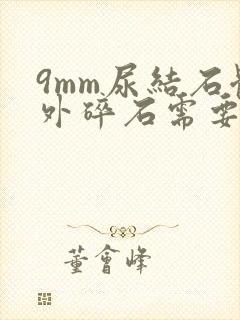 9mm尿結石
外碎石需要
董會峰